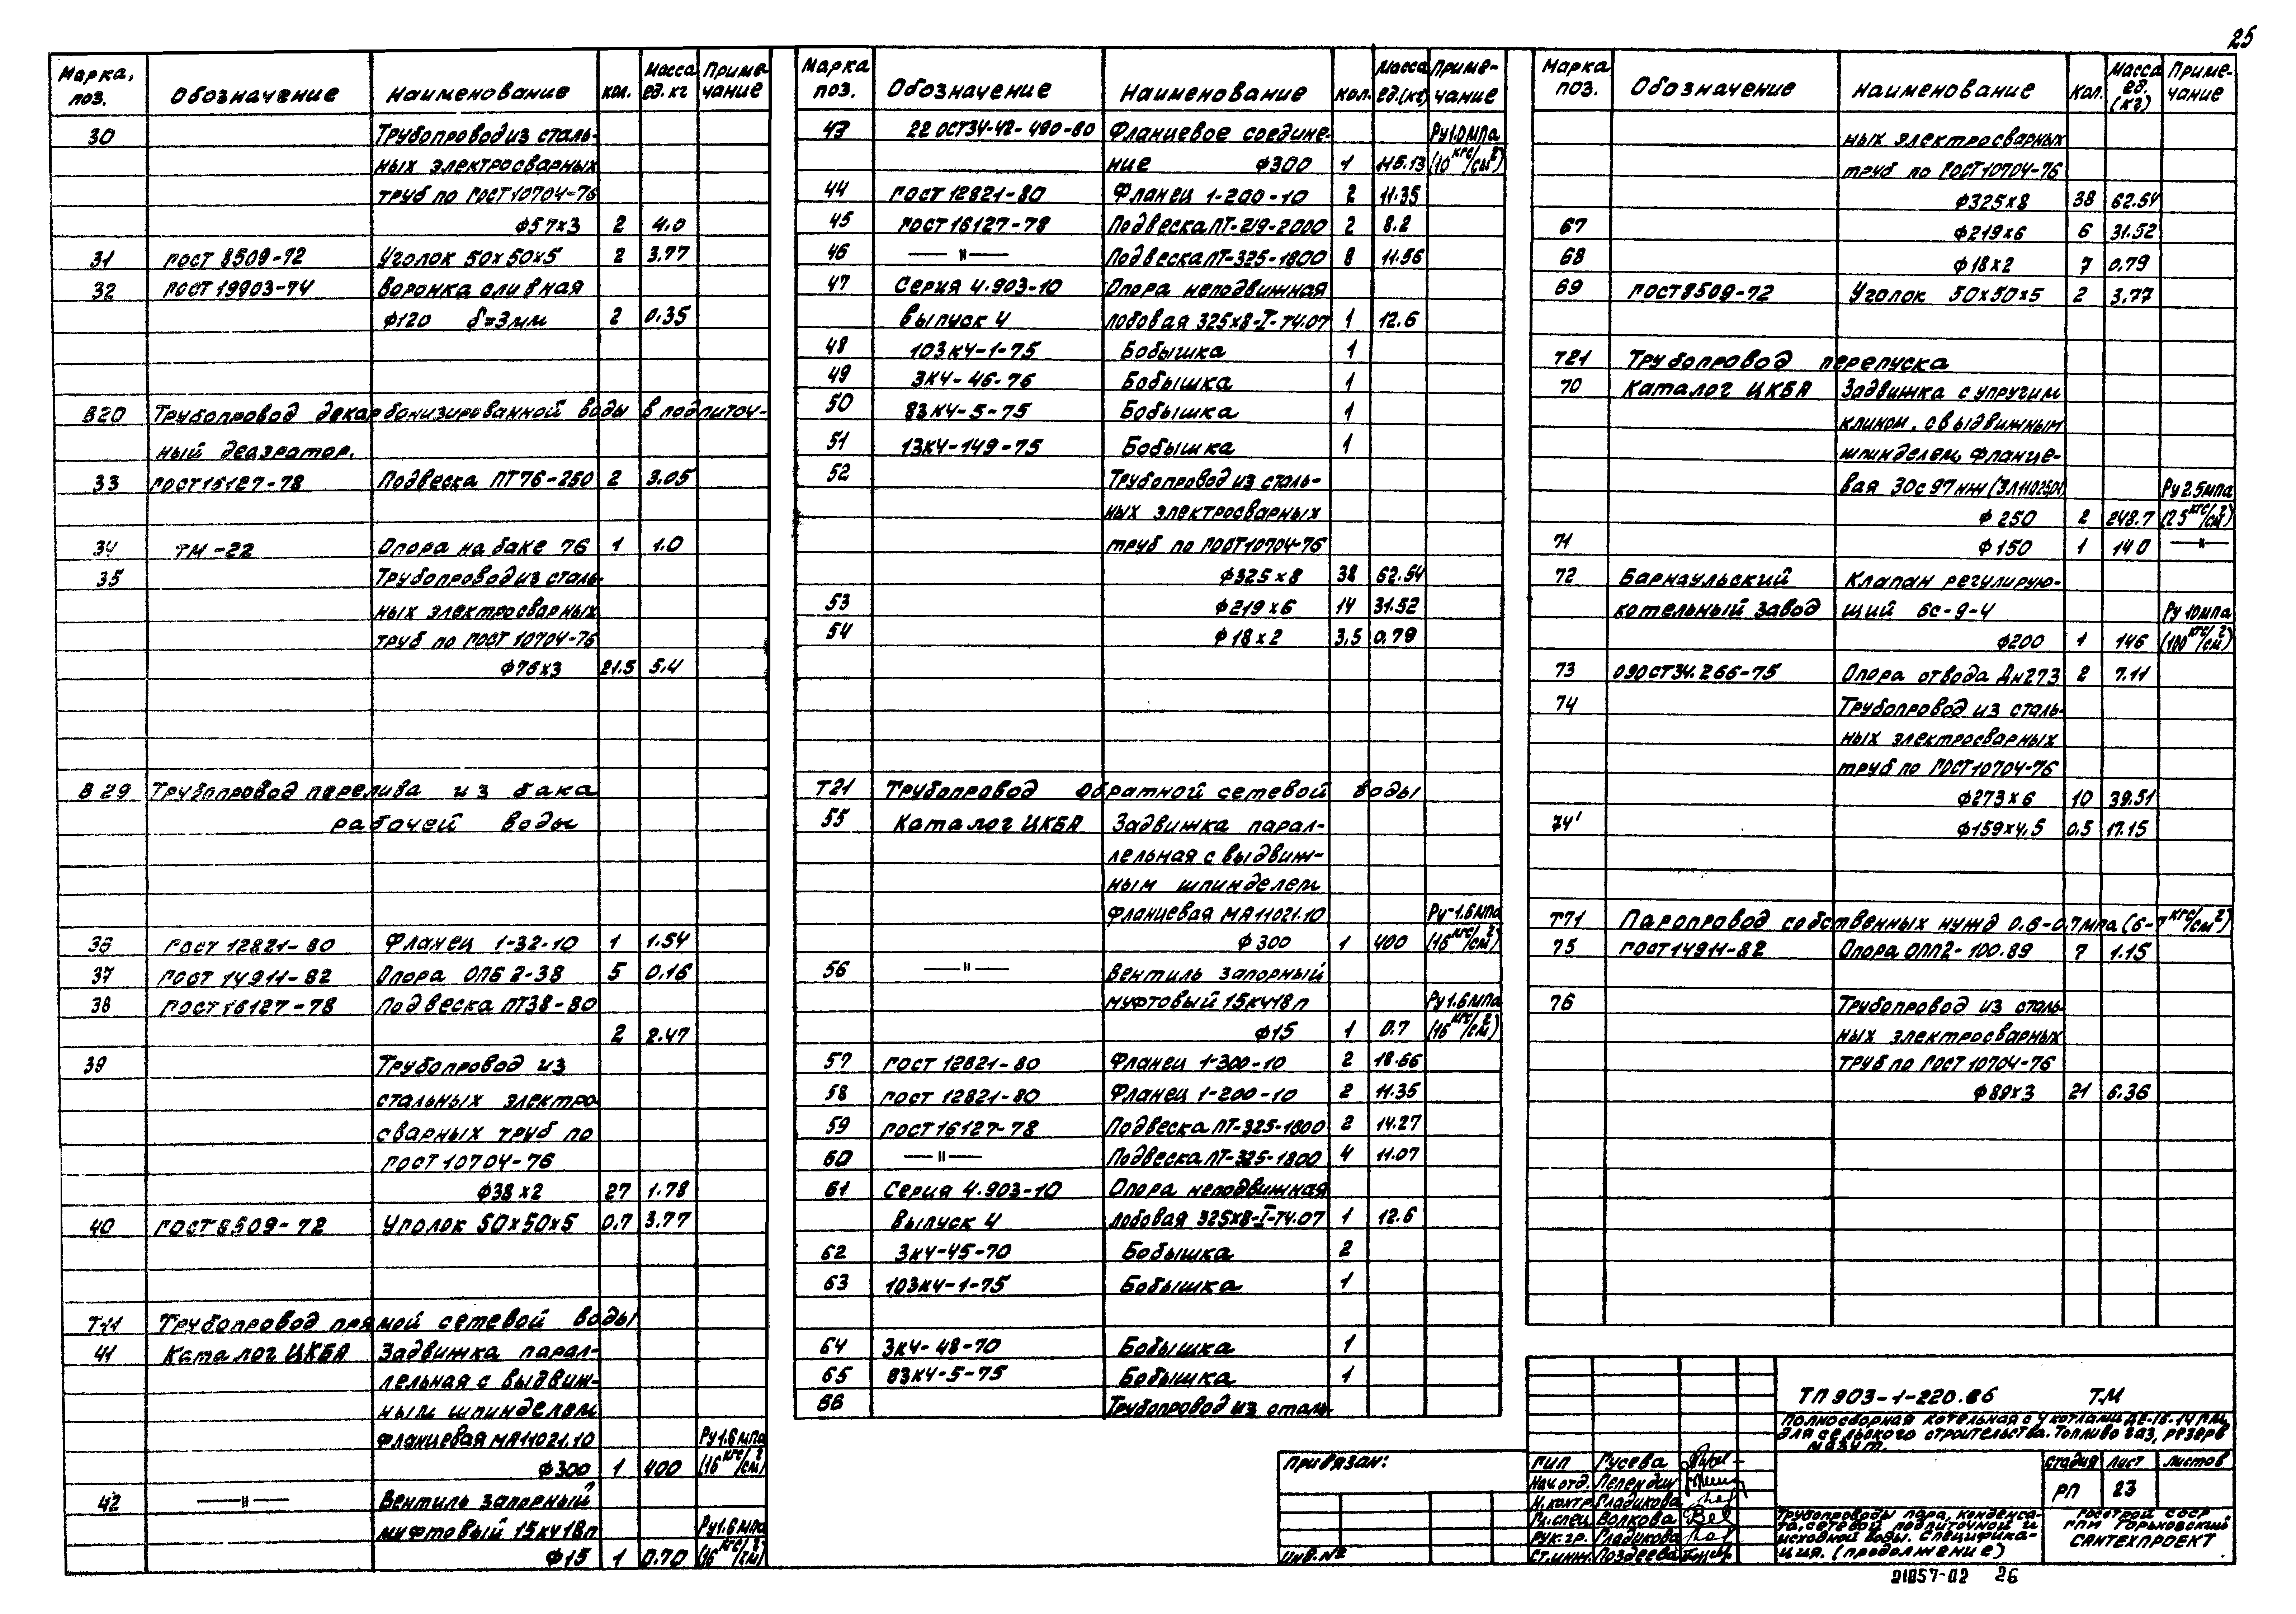 25
Марка, поз. Обозначение Наименование кол. Масса ед. кг Приме-чание
30 Трубопровод из сталь-
ных электросварных
труб по ГОСТ 10704-76
ф57х3 2 4.0
31 ГОСТ 8509-72 Уголок 50х50х5 2 3.77
32 ГОСТ 19903-74 Воронка сливная
ф120 δ=3мм 2 0.35
В20 Трубопровод декарбонизированной воды в подпиточ-
ный деаэратор.
33 ГОСТ 16127-78 Подвеска ПТ76-250 2 3.05
34 ТМ-22 Опора на баке 76 1 1.0
35 Трубопровод из сталь-
ных электросварных
труб по ГОСТ 10704-76
ф76х3 21.5 5.4
В29 Трубопровод перелива из бака
рабочей воды
36 ГОСТ 12821-80 Фланец 1-32-10 1 1.54
37 ГОСТ 14911-82 Опора ОПБ 2-38 5 0.16
38 ГОСТ 16127-78 Подвеска ПТ38-80
2 2.47
39 Трубопровод из
стальных электро
сварных труб по
ГОСТ 10704-76
ф38х2 27 1.78
40 ГОСТ 8509-72 Уголок 50х50х5 0.7 3.77
Т11 Трубопровод прямой сетевой воды
41 Каталог ЦКБА Задвижка парал-
лельная с выдвиж-
ным шпинделем
фланцевая МА11021.10 Ру1.6мпа
ф300 1 400 (16 кгс/см²)
42 —"— Вентиль запорный
муфтовый 15кч18п Ру1.6мпа
ф15 1 0.70 (16 кгс/см²)
Марка поз. Обозначение Наименование кол. Масса ед.(кг) Приме-чание
43 22 ОСТ34-42-490-80 Фланцевое соедине- Ру1.0мпа
ние ф300 1 46.13 (10 кгс/см²)
44 ГОСТ 12821-80 Фланец 1-200-10 2 11.35
45 ГОСТ 16127-78 Подвеска ПТ-219-2000 2 8.2
46 —"— Подвеска ПТ-325-1800 8 11.56
47 Серия 4.903-10 Опора неподвижная
Выпуск 4 лобовая 325х8-I-Т4.07 1 12.6
48 103к4-1-75 Бобышка 1
49 3К4-46-76 Бобышка 1
50 83К4-5-75 Бобышка 1
51 13К4-149-75 Бобышка 1
52 Трубопровод из сталь-
ных электросварных
труб по ГОСТ 10704-76
ф325х8 38 62.54
53 ф219х6 14 31.52
54 ф18х2 3,5 0.79
Т21 Трубопровод обратной сетевой воды
55 Каталог ЦКБА Задвижка парал-
лельная с выдвиж-
ным шпинделем
фланцевая МА11021.10 Ру-1.6мпа
ф300 1 400 (16 кгс/см²)
56 —"— Вентиль запорный
муфтовый 15кч18п Ру1.6мпа
ф15 1 0.7 (16 кгс/см²)
57 ГОСТ 12821-80 Фланец 1-300-10 2 18.66
58 ГОСТ 12821-80 Фланец 1-200-10 2 11.35
59 ГОСТ 16127-78 Подвеска ПТ-325-1800 2 14.27
60 —"— Подвеска ПТ-325-1800 4 11.07
61 Серия 4.903-10 Опора неподвижная
Выпуск 4 лобовая 325х8-I-Т4.07 1 12.6
62 3к4-45-70 Бобышка 2
63 103К4-1-75 Бобышка 1
64 3К4-48-70 Бобышка 1
65 83К4-5-75 Бобышка 1
66 Трубопровод из сталь-
Марка поз. Обозначение Наименование Кол. Масса ед. (кг) Приме-чание
ных электросварных
труб по ГОСТ 10704-76
ф325х8 38 62.54
67 ф219х6 6 31.52
68 ф18х2 7 0.79
69 ГОСТ 8509-72 Уголок 50х50х5 2 3.77
Т21 Трубопровод перепуска
70 Каталог ЦКБА Задвижка с упругим
клином, с выдвижным
шпинделем, фланце-
вая 30с97нж Ру2.5мпа
ф250 2 248.7 (25 кгс/см²)
71 ф150 1 140 —"—
72 Барнаульский Клапан регулирую-
котельный завод щий 6с-9-4 Ру10мпа
ф200 1 146 (100 кгс/см²)
73 09ОСТ34.266-75 Опора отвода Дн273 2 7.11
74 Трубопровод из сталь-
ных электросварных
труб по ГОСТ 10704-76
ф273х6 10 39.51
74' ф159х4,5 0.5 17.15
Т71 Паропровод собственных нужд 0.6-0.7мпа (6-7 кгс/см²)
75 ГОСТ 14911-82 Опора ОПП2-100.89 7 1.15
76 Трубопровод из сталь-
ных электросварных
труб по ГОСТ 10704-76
ф89х3 21 6.36
ТП 903-1-220.86 ТМ
Полносборная котельная с 4 котлами ДЕ-16-14ГМ,
для сельского строительства. Топливо газ, резерв
мазут.
Привязан:
Инв.№
ГИП Гусева
Нач.отд. Лепендин
Н.контр. Гладикова
Гл.спец. Волкова
Рук.гр. Гладикова
Ст.инж. Поздеева
стадия лист листов
РП 23
Трубопроводы пара, конденса-
та, сетевой подпиточной и
исходной воды. Специфика-
ция. (продолжение)
Госстрой СССР
ГПИ Горьковский
САНТЕХПРОЕКТ
21057-02 26